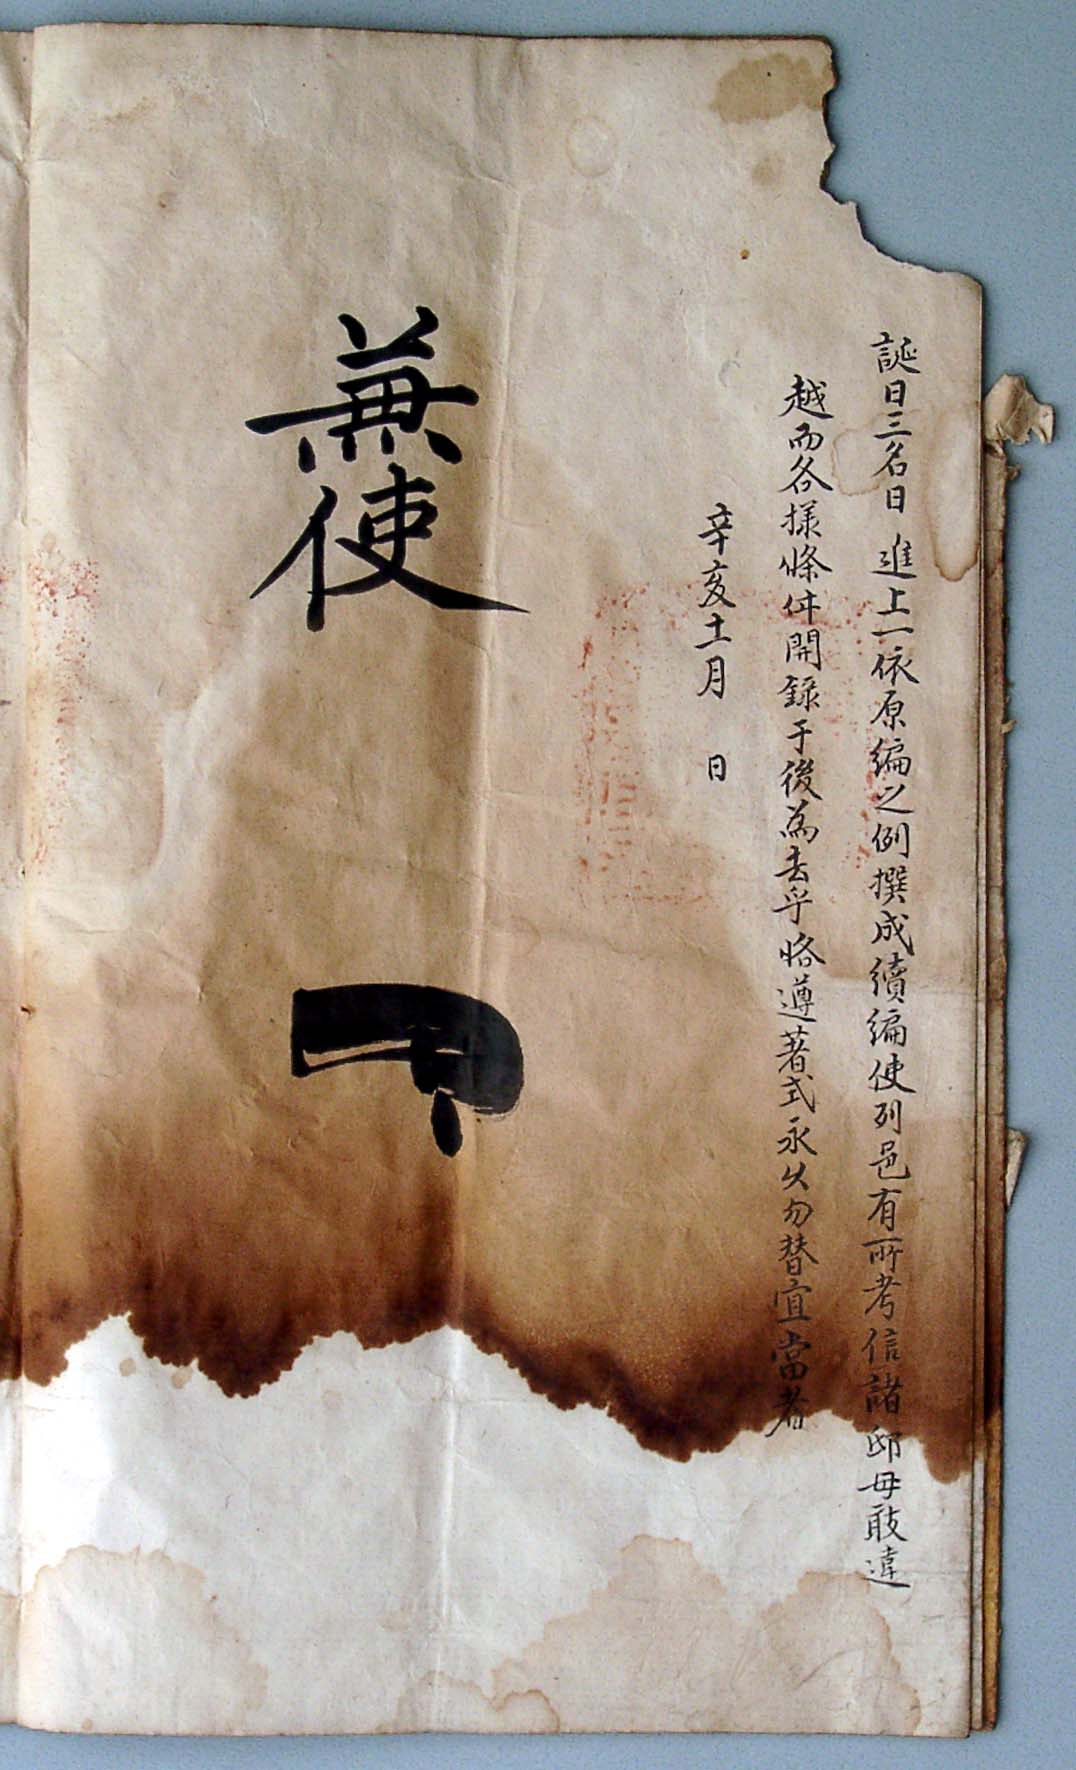 誕日三名日 進上一依原編之例撰成續編使列邑有所考信諸邸毋敢違
越而各樣條件開録于後爲去乎恪遵著式永久勿替宜當者
辛亥十一月 日
兼使